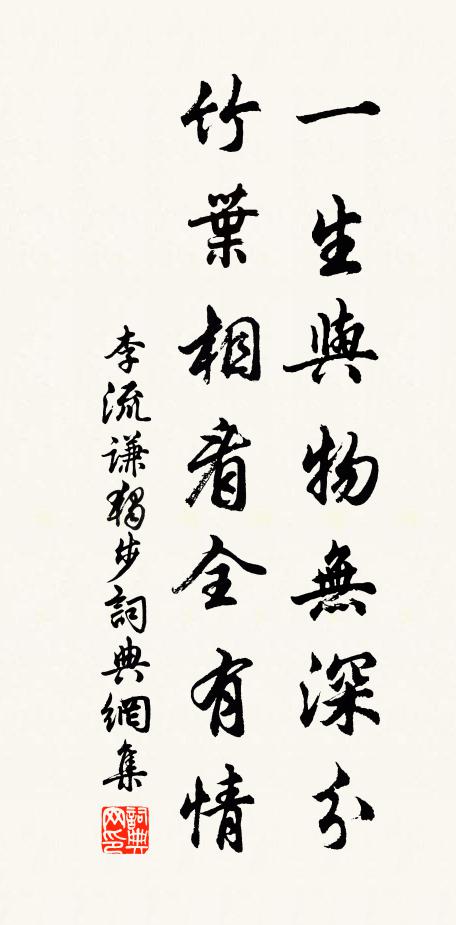 一生與物無深分
竹葉相看全有情
李流谦獨步詞典網集
詞典网印